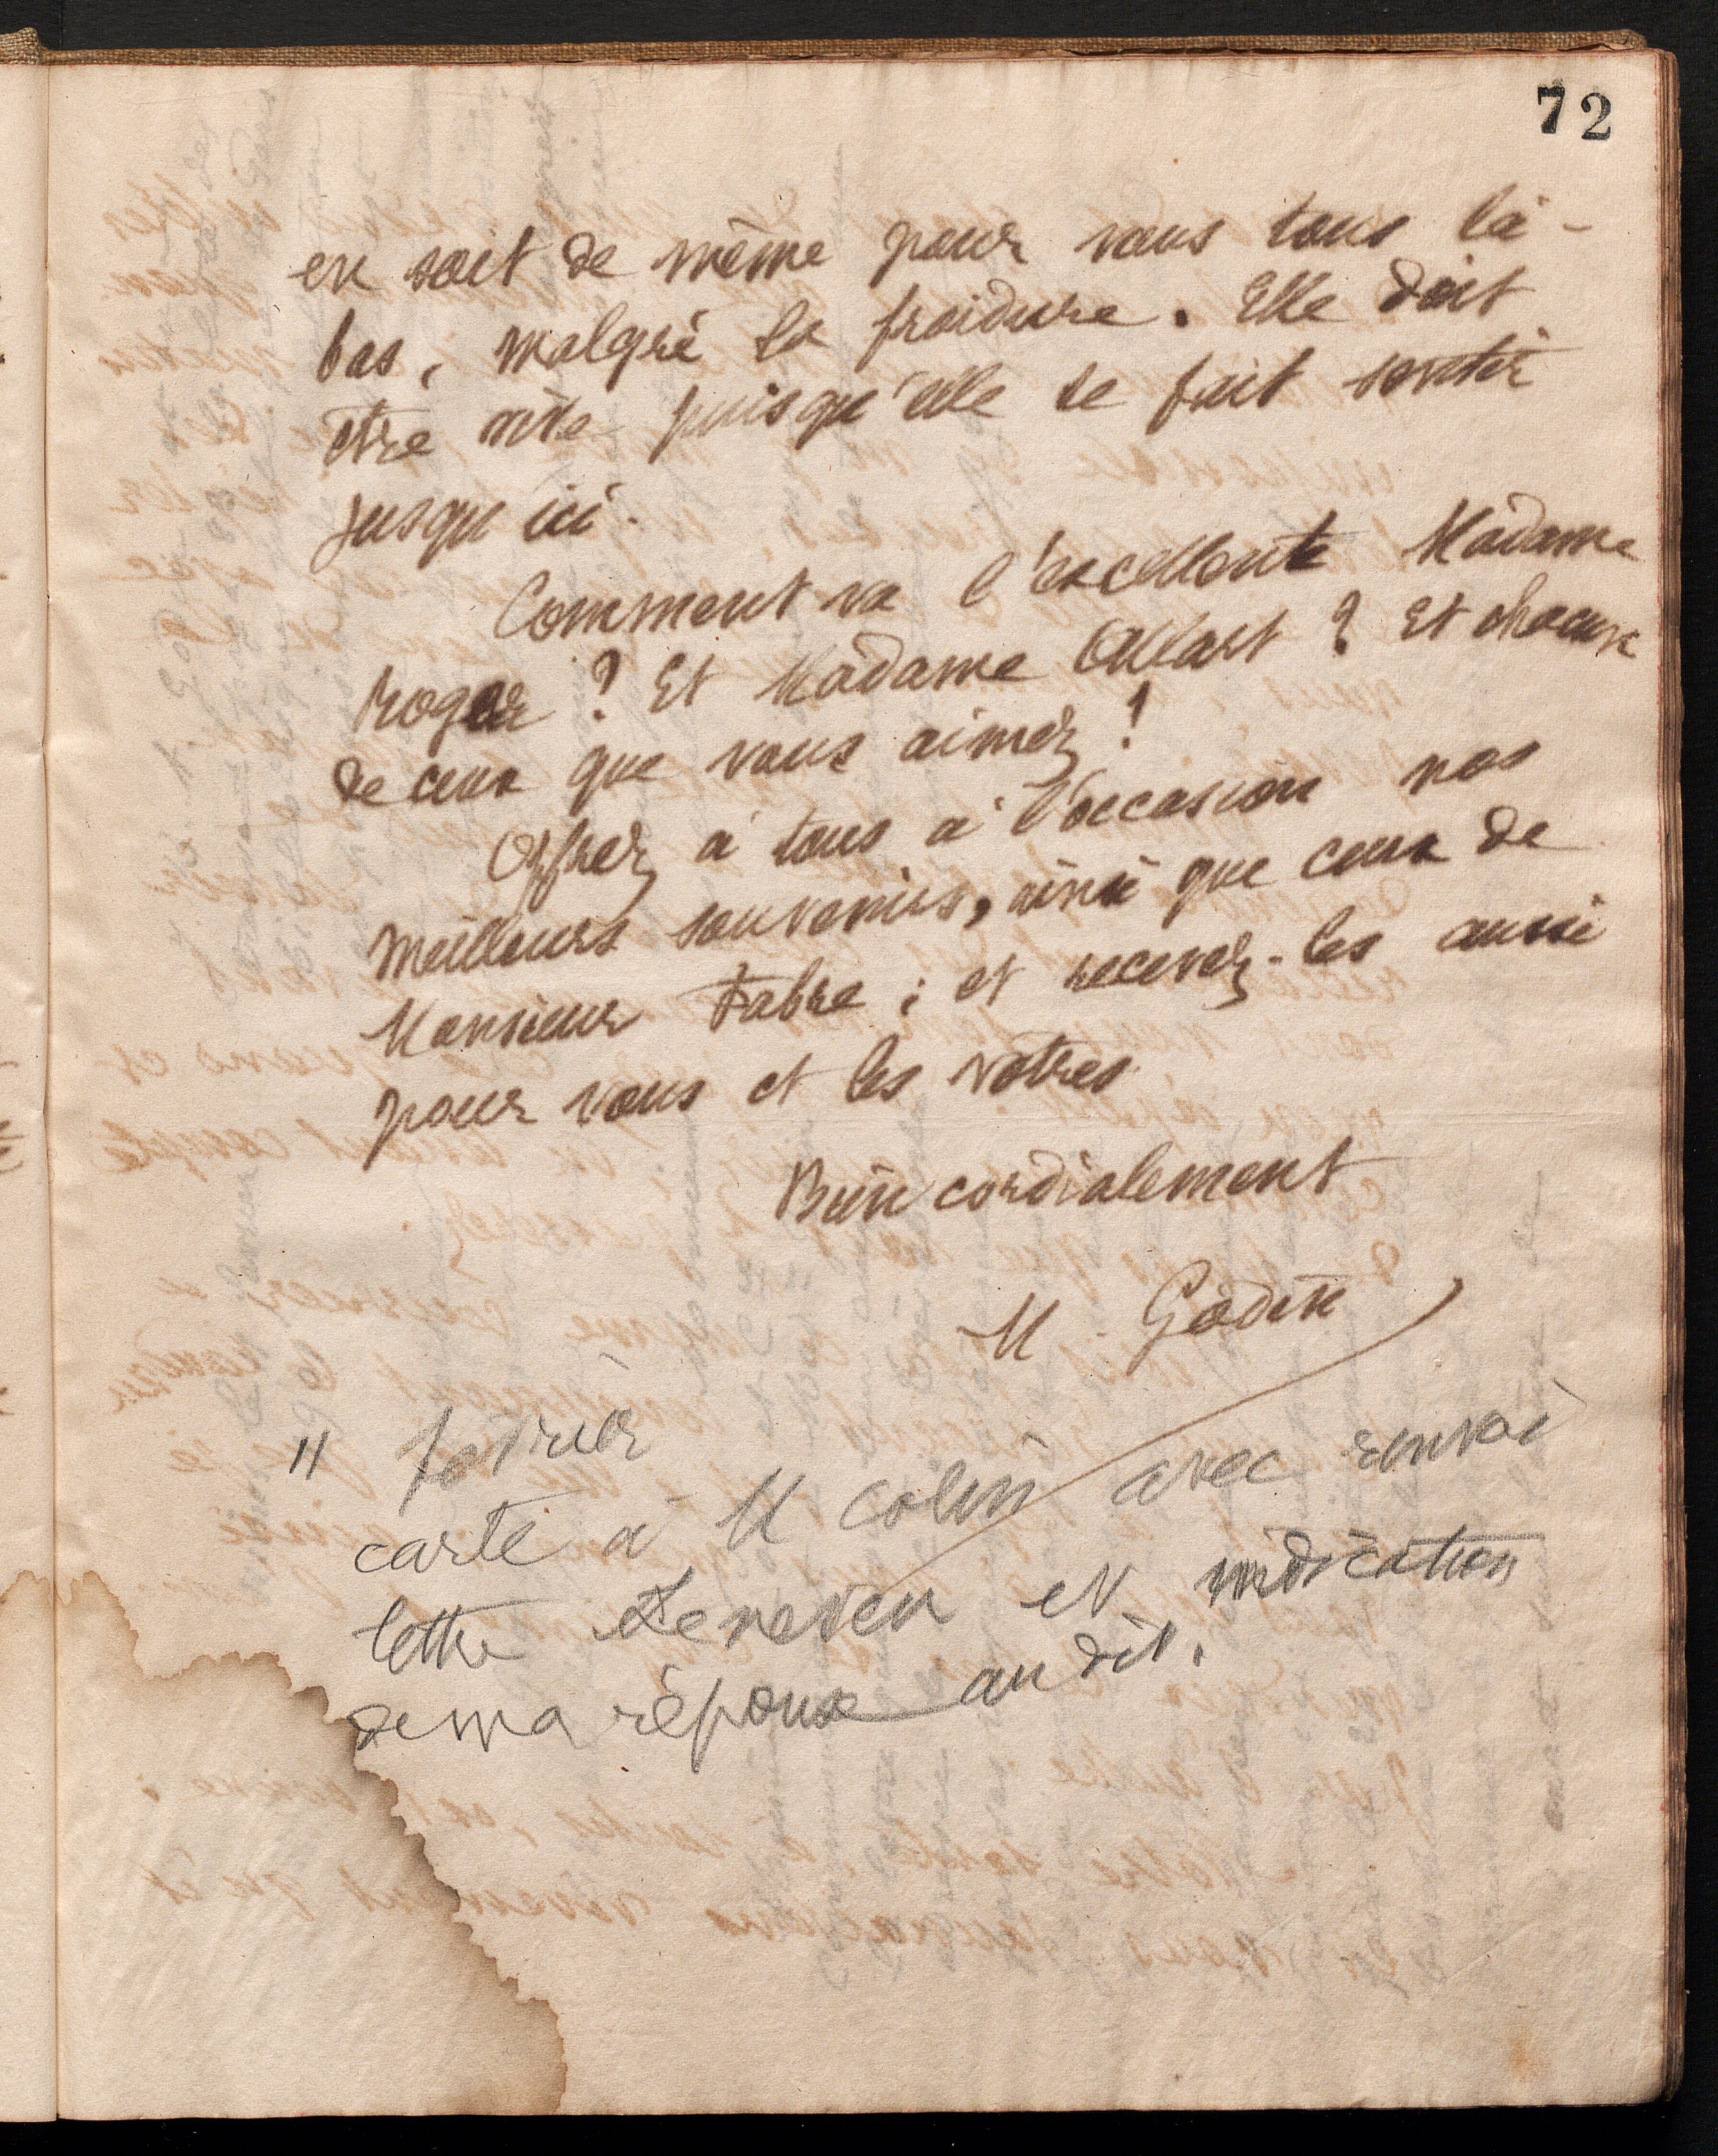 72
en soit de même pour vous tous là-
bas, malgré la froidure. Elle doit
être vive puisqu'elle se fait sentir
jusqu'ici.
Comment va l'excellente Madame
Roger ? Et Madame Allart ? Et chacun
de ceux que vous aimez !
Offrez à tous à l'occasion nos
meilleurs souvenirs, ainsi que ceux de
Monsieur Fabre ; et recevez-les aussi
pour vous et les vôtres
Bien cordialement
M. Godin
11 février
carte à M Colin avec renvoi
lettre et
de ma réponse au dit.